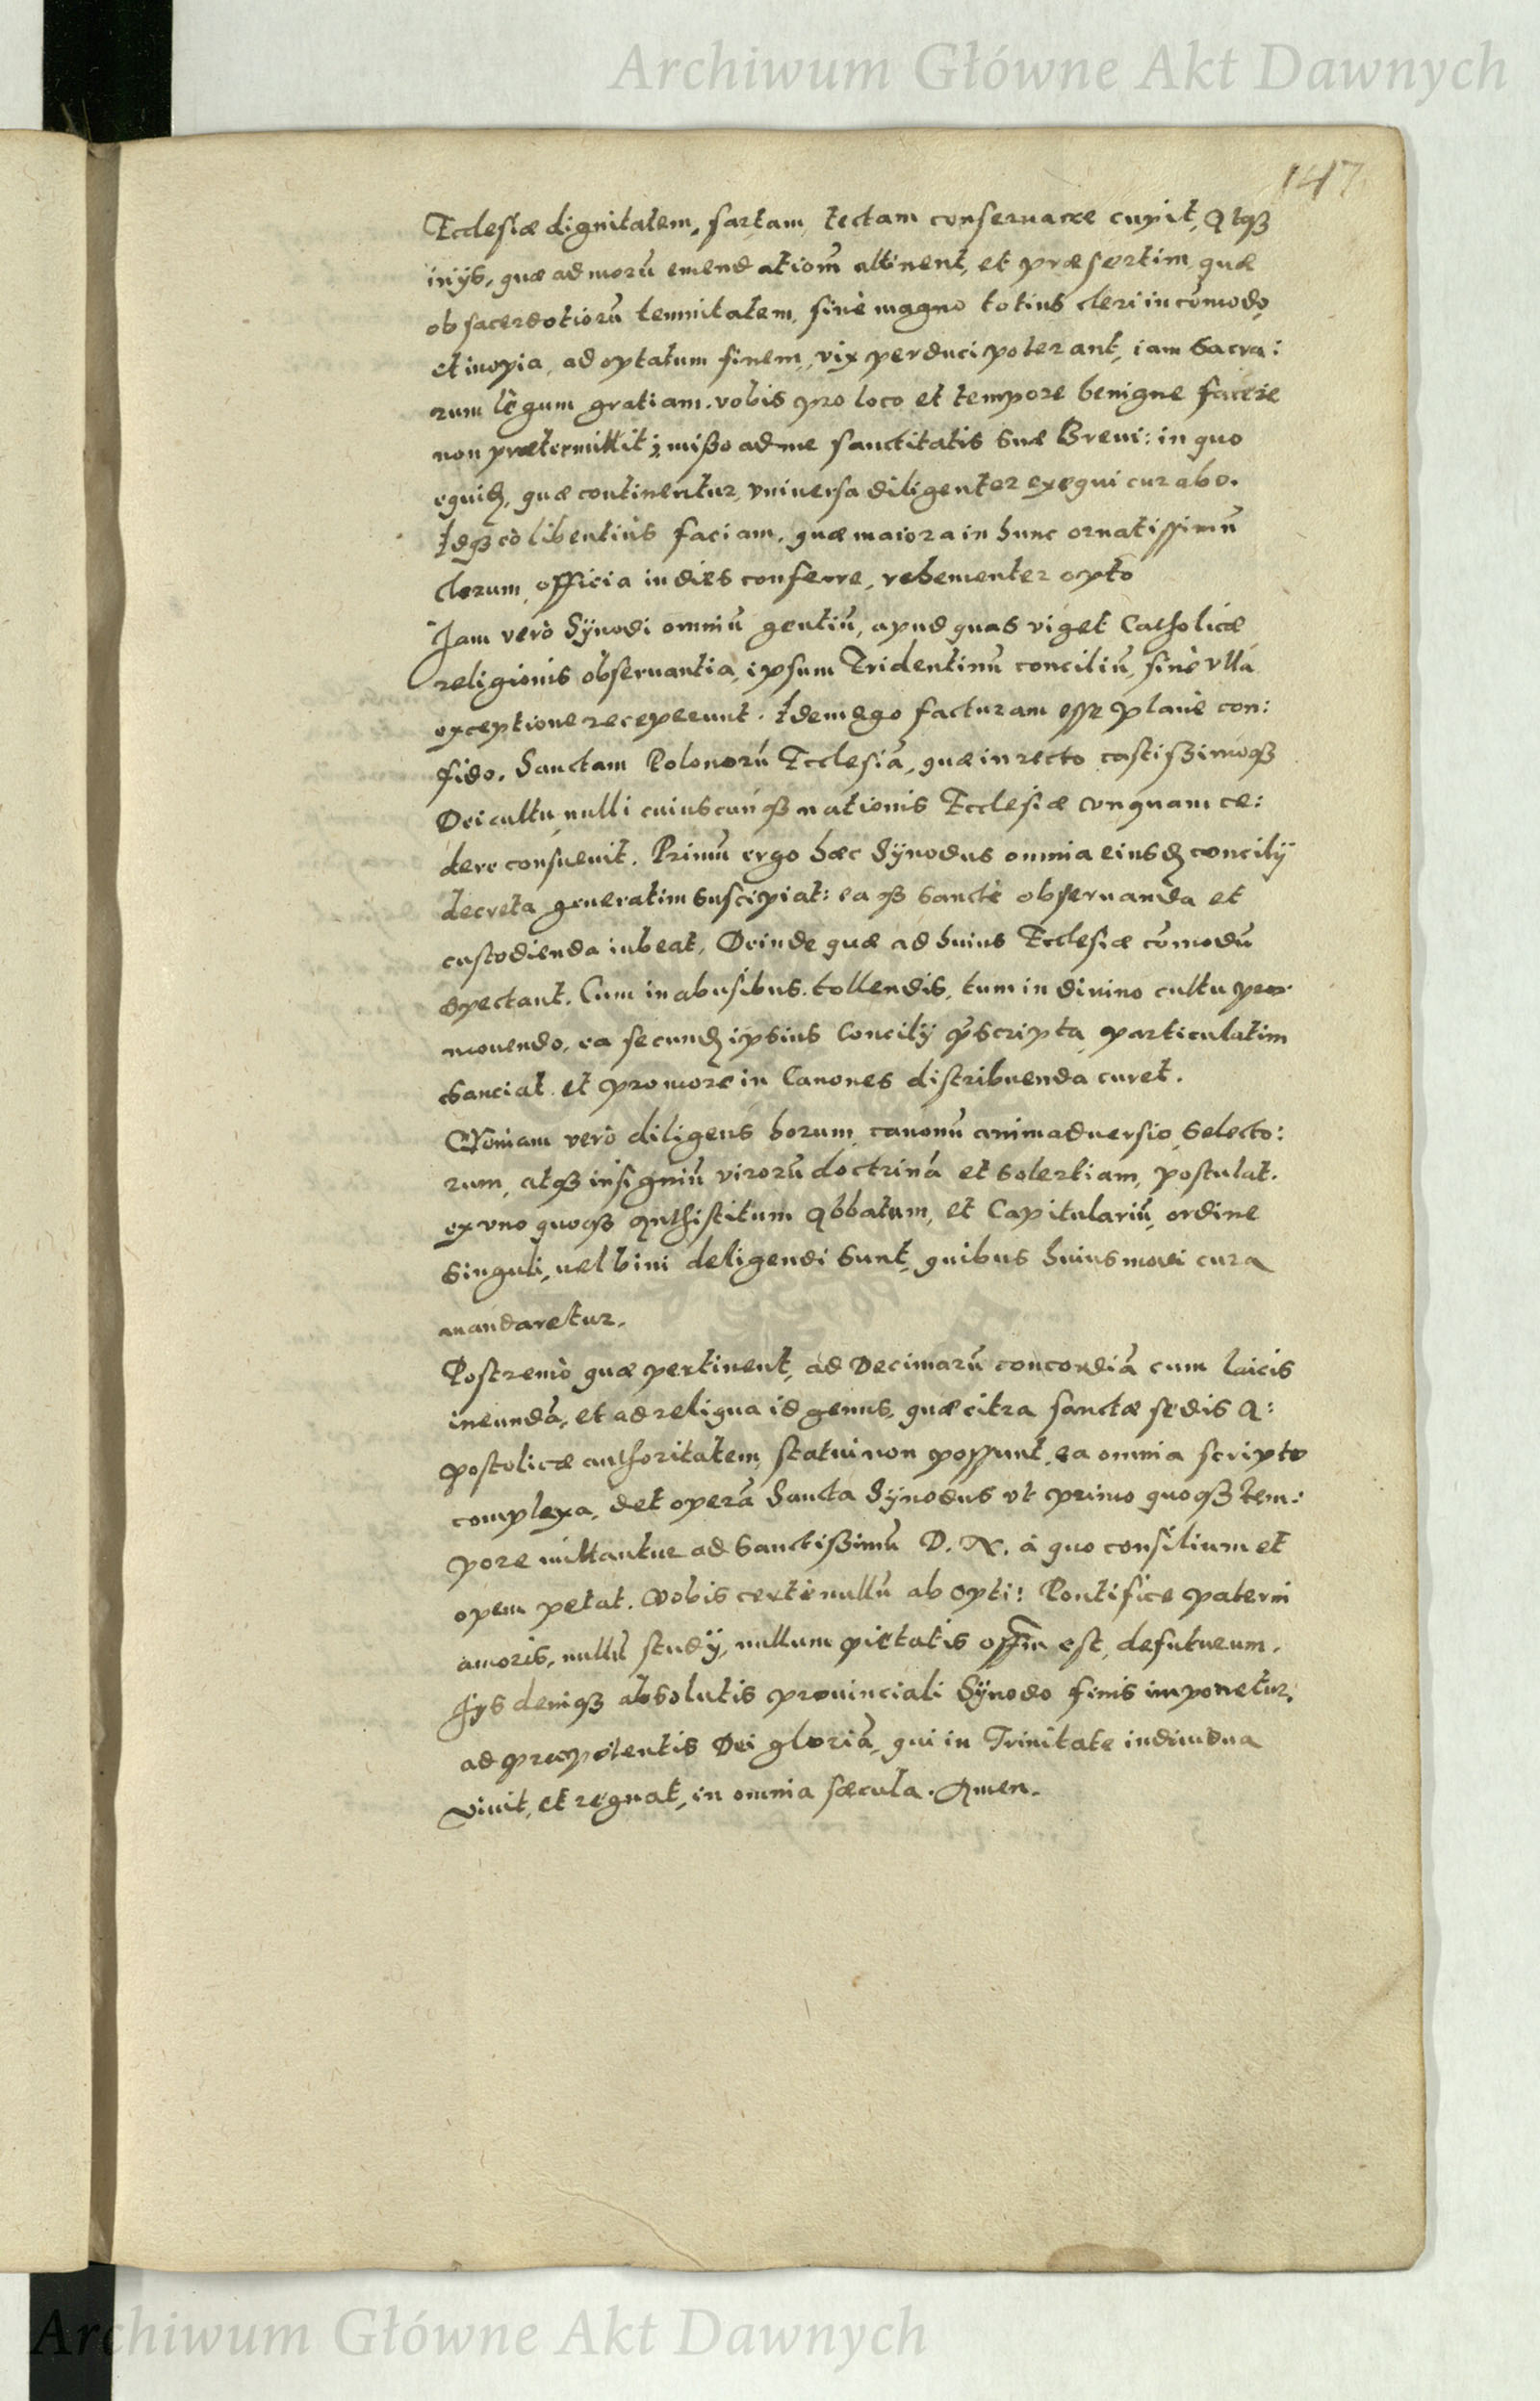 Archiwum Główne Akt Dawnych
147
Ecclesiæ dignitatem, sartam tectam conseruare cupit, Atqꝫ
in ijs, quæ ad morũ emendationẽ attinent, et præsertim quæ
ob sacerdotiorũ tenuitatem, sinè magno totius cleri incõmodo,
et inopia, ad optatum finem, vix perduci poterant, iam Sacra:
rum legum gratiam. vobis pro loco et tempore benigne facere
non prætermittit; mißo ad me sanctitatis suæ Breui: in quo
equiḍ, quæ continentur, vniuersa diligenter exequi curabo.
Idqꝫ eò libentiùs faciam, quæ maiora in hunc ornatissimũ
clerum, officia in dies conferre, vehementer opto
Jam verò Sÿnodi omniũ gentiũ, apud quas viget Catholicæ
religionis obseruantia, ipsum Tridentinũ conciliũ, sinè vlla
exceptione receperunt. Idem ego facturam esse planè con:
fido. Sanctam Polonorũ Ecclesiã, quæ in recto castißimoqꝫ
Dei cultu, nulli cuiuscunqꝫ nationis Ecclesiæ vnquam ce:
dere consueuit. Primũ ergo hæc Sÿnodus omnia eiusḍ concilij
decreta generatim suscipiat: eaqꝫ sanctè obseruanda et
custodienda iubeat, Deinde quæ ad huius Ecclesiæ cõmodũ
spectant. Cum in abusibus tollendis, tum in diuino cultu pro
mouendo, ea secunḍ ipsius Concilij p̃scripta, particulatim
Sanciat et pro more in Canones distribuenda curet.
Qvoniam verò diligens horum canonũ animaduersio, selecto:
rum, atqꝫ insigniũ virorũ doctrinã et solertiam, postulat.
ex vno quoqꝫ Anthistitum Abbatum, et Capitulariũ, ordine
singuli, uel bini deligendi sunt, quibus huiusmodi cura
mandaretur.
Postremò quæ pertinent, ad Decimarũ concordiã cum laicis
ineundã, et ad reliqua id genus, quæ citra sanctæ sedis A:
postolicæ authoritatem, statui non possunt, ea omnia scripto
complexa, det operã Sancta Sÿnodus vt primo quoqꝫ tem:
pore mittantur ad Sanctißimũ D. N. à quo consilium et
opem petat. Vobis certè nullũ ab Opti: Pontifice paterni
amoris, nullũ studij, nullum pietatis offm̃ est, defuturum.
Ijs deniqꝫ absolutis prouinciali Sÿnodo finis imponetur,
ad præpotentis Dei gloriã, qui in Trinitate indiuidua
viuit, et regnat, in omnia sæcula. Amen.
Archiwum Główne Akt Dawnych